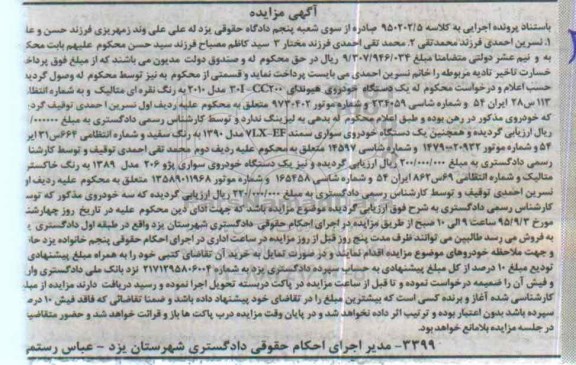 آگهی مزایده
باستناد پرونده اجرایی به کلاسه ۹۵۰۲۰۲/۵ صادره از سوی شعبه پنجم دادگاه حقوقی یزد له علی علی وند زمهریزی فرزند حسن و علیه
۱. نسرین احمدی فرزند محمدتقی ۲. محمد تقی احمدی فرزند مختار ۳ سید کاظم مصباح فرزند سید حسن محکوم علیهم بابت محکوم
به و نیم عشر دولتی متضامنا مبلغ ۹/۳۰۷/۹۴۶/۰۳۴ ریال در حق محکوم له و صندوق دولت مدیون می باشند که از مبلغ فوق پرداخت
خسارت تاخیر تادیه مربوطه را خانم نسرین احمدی می بایست پرداخت نماید و قسمتی از محکوم به نیز توسط محکوم له وصول گردیده
حسب اعلام و درخواست محکوم له یک دستگاه خودروی هیوندای I30-CC200 مدل ۲۰۱۰ به رنگ نقره ای متالیک و به شماره انتظامی
۱۱۳ س۲۸ ایران ۵۴ و شماره شاسی ۲۳۴۰۵۹ و شماره موتور ۹۷۳۰۴۰۲ متعلق به محکوم علیه ردیف اول نسرین احمدی توقیف گردیده
که خودروی مذکور در رهن بوده و طبق اعلام محکوم له بدهی به لیزینگ ندارد و توسط کارشناس رسمی دادگستری به مبلغ
ریال ارزیابی گردیده و همچنین یک دستگاه خودروی سواری سمند LX-EF7 مدل ۱۳۹۰ به رنگ سفید و شماره انتظامی ۶۶۴س۳۱ ایران
۵۴ و شماره موتور ۱۴۷۹۰۰۲۰۹۳۲ و شماره شاسی ۱۴۵۹۷ متعلق به محکوم علیه ردیف دوم محمد تقی احمدی توقیف و توسط کارشناس
رسمی دادگستری به مبلغ ۲۰۰/۰۰۰/۰۰۰ ریال ارزیابی گردیده و نیز یک دستگاه خودروی سواری پژو ۲۰۶ مدل ۱۳۸۹ به رنگ خاکستری
متالیک و شماره انتظامی ۶۹س۸۶۲ ایران ۵۴ و شماره شاسی ۱۶۵۴۵۸ و شماره موتور ۱۳۵۸۹۰۱۱۹۶۸ متعلق به محکوم علیه ردیف اول
نسرین احمدی توقیف و توسط کارشناس رسمی دادگستری به مبلغ ۲۲۰/۰۰۰/۰۰۰ ریال ارزیابی گردیده که سه خودروی مذکور که توسط
کارشناس رسمی دادگستری به شرح فوق ارزیابی گردیده موضوع مزایده باشد که جهت ادای دین محکوم علیه در تاریخ روز چهارشنبه
مورخ ۹۵/۹/۳ ساعت ۹ الی ۱۰ صبح از طریق مزایده در اجرای احکام حقوقی دادگستری شهرستان یزد واقع در طبقه اول دادگستری یزد
به فروش می رسد طالبین می توانند ظرف مدت پنج روز قبل از روز مزایده در ساعت اداری در اجرای احکام حقوقی پنجم خانواده یزد حاضر
و جهت ملاحظه خودروهای موضوع مزایده اقدام نمایند و در صورت تمایل به خرید آن تقاضای کتبی خود را به همراه مبلغ پیشنهادی
تودیع مبلغ ۱۰ درصد از کل مبلغ پیشنهادی به حساب سپرده دادگستری یزد به شماره ۲۱۷۱۲۹۵۸۰۶۰۰۴ نزد بانک ملی دادگستری واریز
و فیش آن را ضمیمه درخواست نموده و تا قبل از ساعت مزایده در پاکت دربسته تحویل اجرا نموده و رسید دریافت دارند مزایده از مبلغ
کارشناسی شده آغاز و برنده کسی است که بیشترین مبلغ را در تقاضای خود پیشنهاد داده باشد و ضمنا تقاضائی که فاقد فیش ۱۰ درصد
سپرده باشد بدون اعتبار بوده و ترتیب اثر داده نخواهد شد و در پایان وقت مزایده درب پاکت ها باز و قرائت خواهد شد و حضور متقاضیان
در جلسه مزایده بلامانع خواهد بود.
۳۳۹۹- مدیر اجرای احکام حقوقی دادگستری شهرستان یزد - عباس رستمی